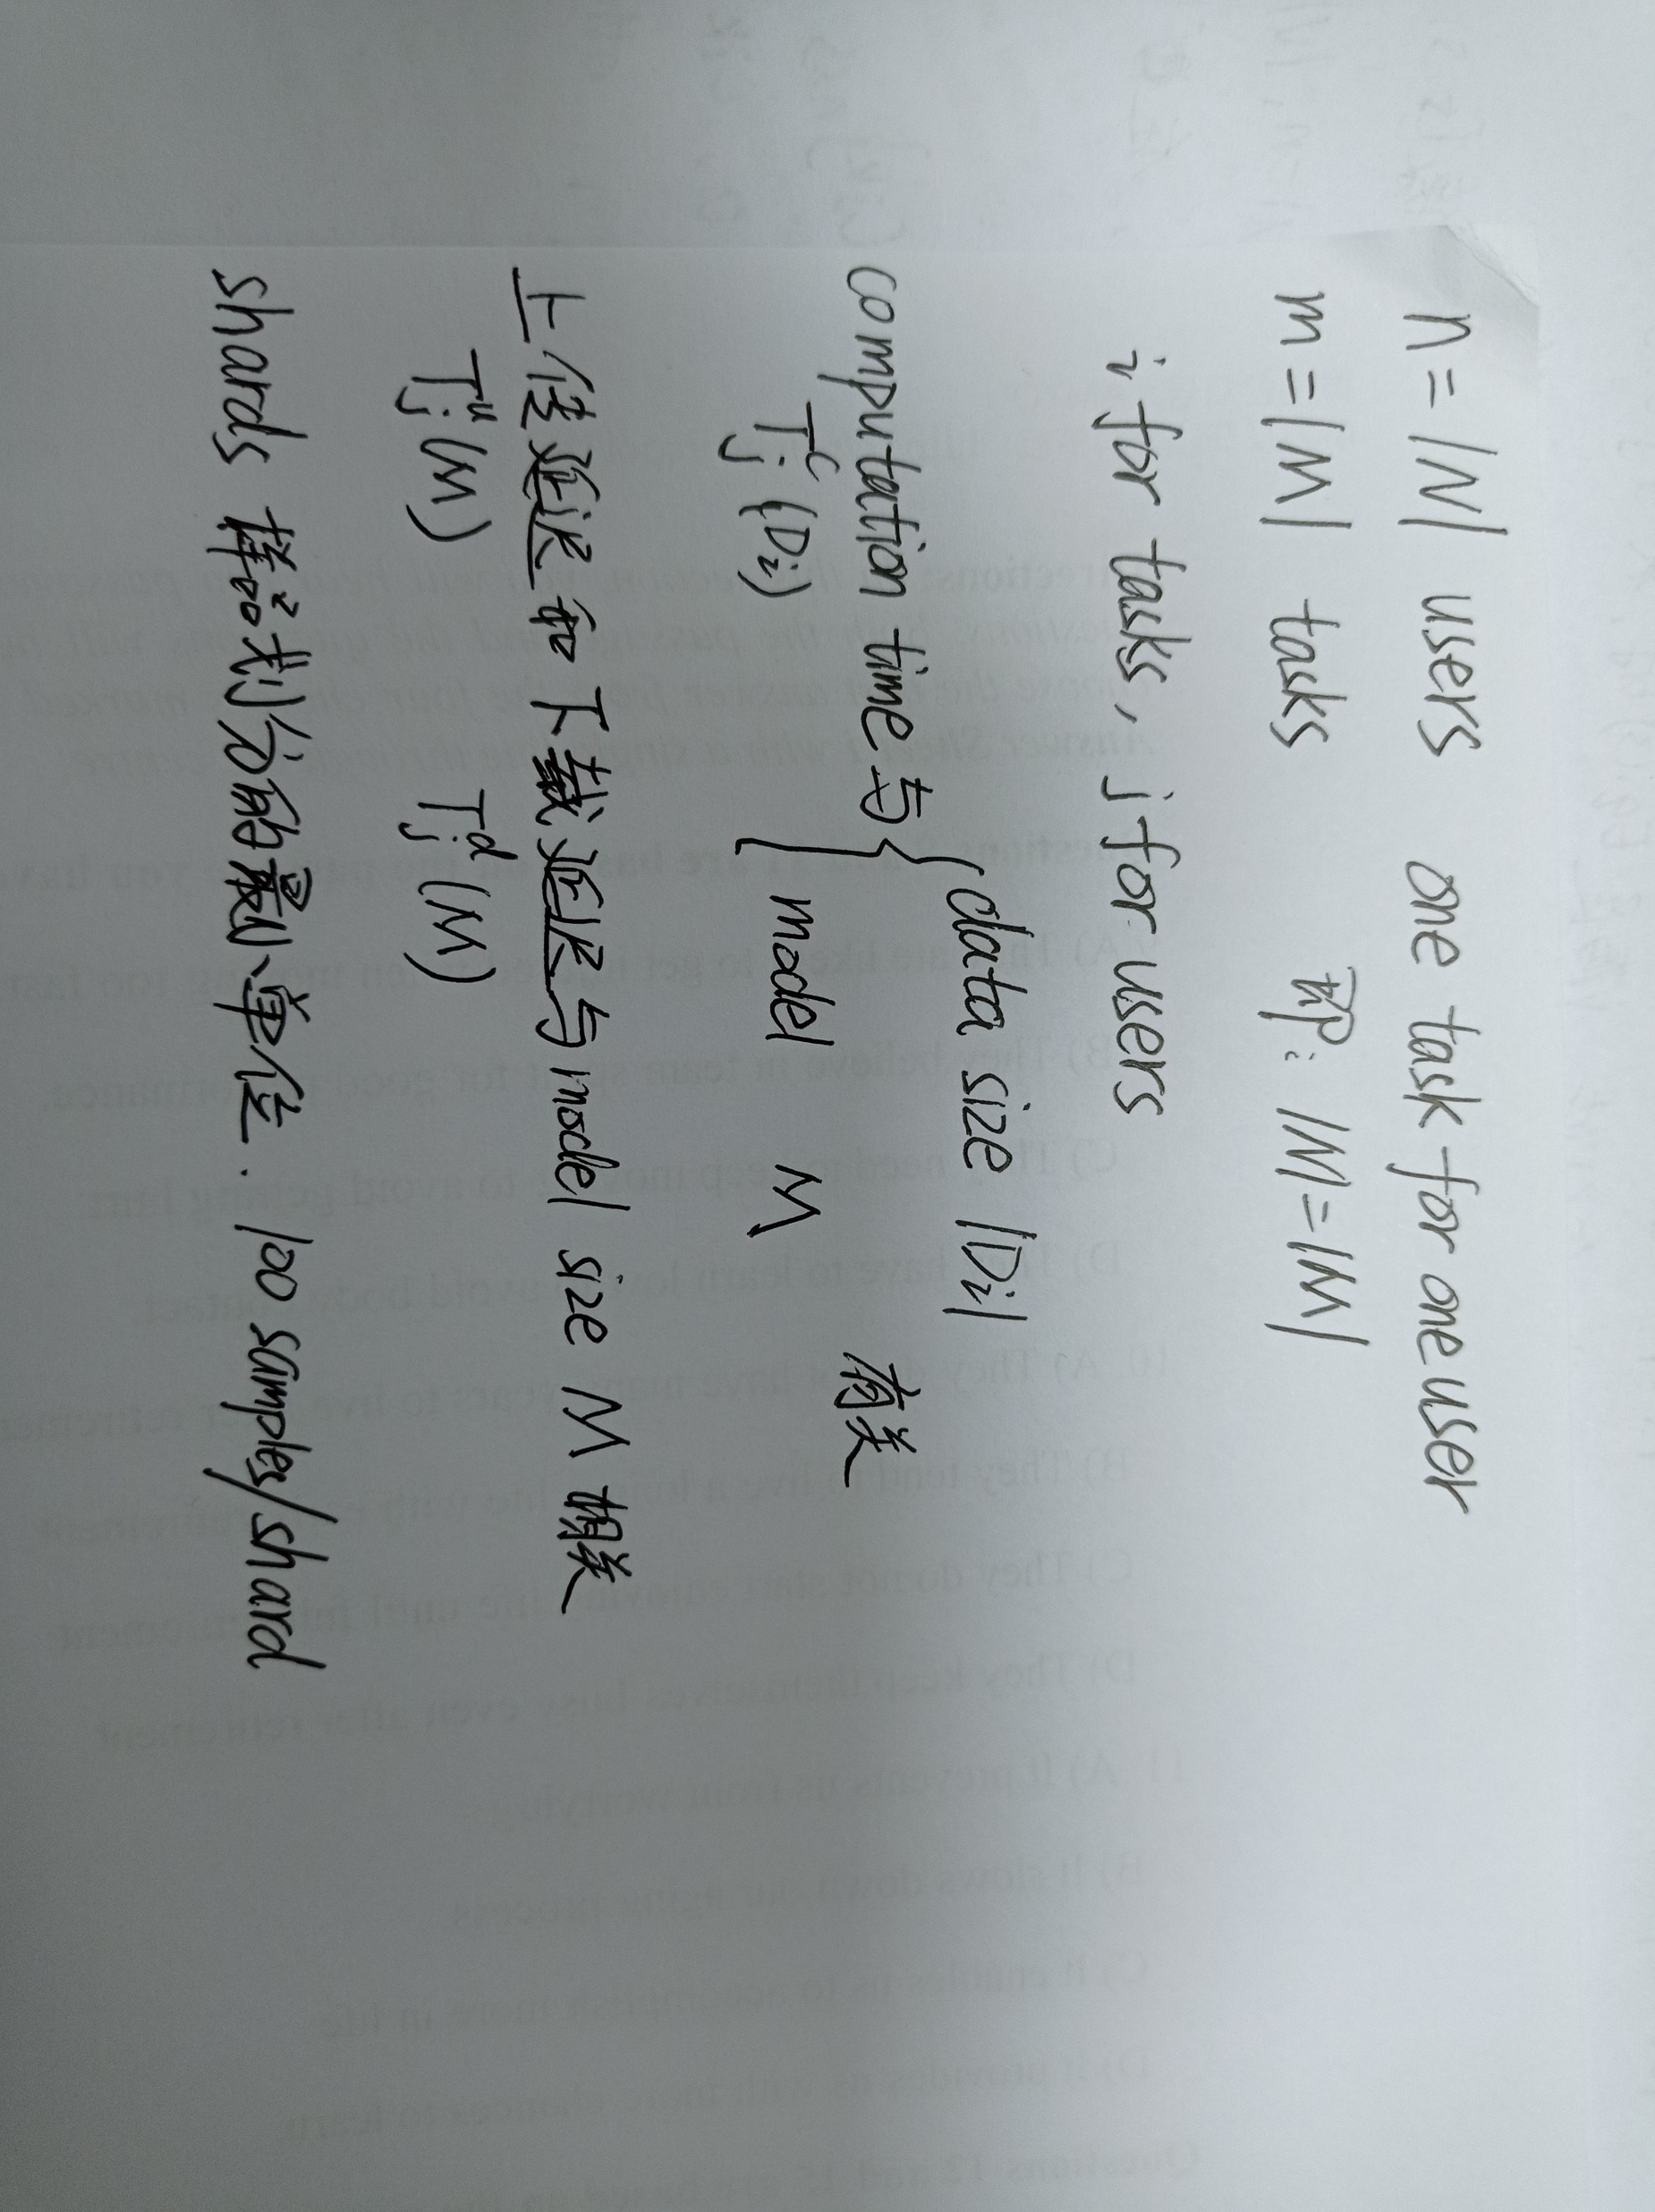 n = |N| users one task for one user
m = |M| tasks 即: |M| = |N|
i for tasks, j for users
computation time 与 { data size |Di|
model M 有关
T_j^c (Di)
上传延迟 和 下载延迟 与 model size M 相关
T_j^u (M) T_j^d (M)
shards 样本划分的最小单位. 100 samples/shard